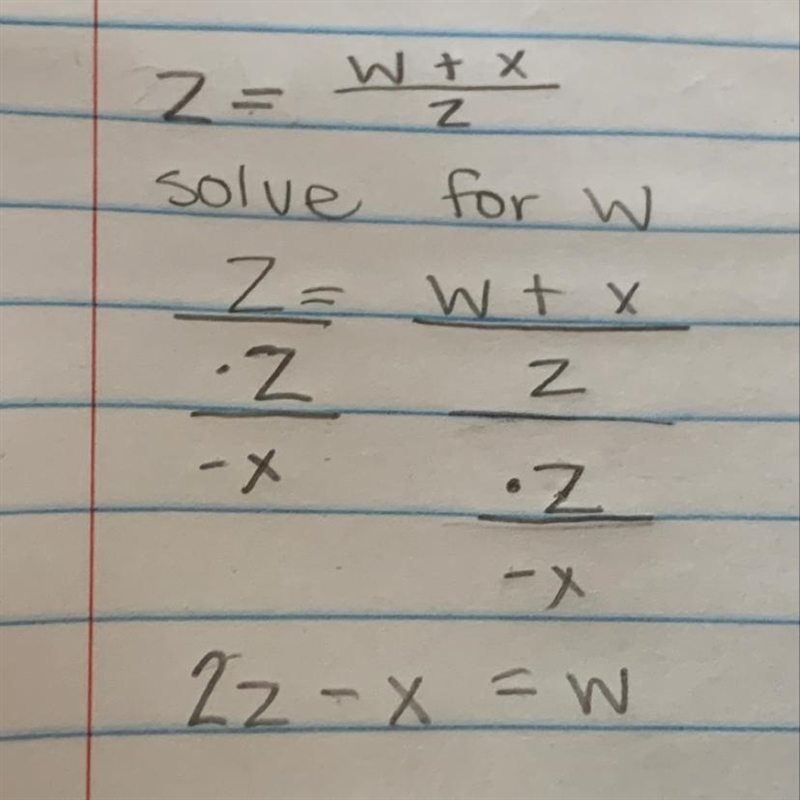 Z = W + X
Z
solve for W
Z = W + X
·Z Z
-X ·Z
-X
2z - X = W